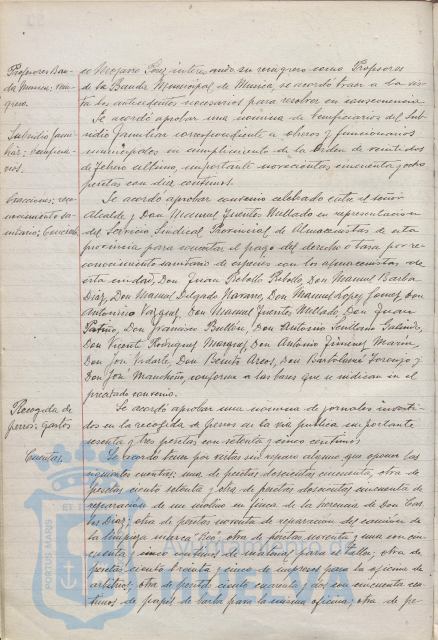 Profesores Ban-
da Musica: rein-
greso.
de Mozano Pérez interesando su reingreso como Profesores
de la Banda Municipal de Musica, se acordó traer a la vis-
ta los antecedentes necesarios para resolver en consecuencia.
Subsidio fami-
liar: beneficia-
rios.
Se acordó aprobar una nomina de beneficiarios del Sub-
sidio familiar correspondiente a obreros y funcionarios
municipales en cumplimiento de la Orden de veintidos
de Febrero ultimo, importante novecientas cincuenta y ocho
pesetas con diez centimos.
reco-
nocimiento sa-
nitario; Concierto
Se acordó aprobar convenio celebrado entre el señor
Alcalde y Don Manuel Fuentes Mellado en representacion
del Servicio Sindical Provincial de Almacenistas de esta
provincia para concertar el pago del derecho o tasa por re-
conocimiento sanitario de especies con los almacenistas de
esta entidad, Don Juan Rebollo Rebollo, Don Manuel Barba
Diaz, Don Manuel Delgado Navarro, Don Manuel Lopez Gomez, Don
Antonino Vazquez, Don Manuel Fuentes Mellado, Don Juan
Patiño, Don Francisco Don Antonio Galindo,
Don Vicente Rodriguez Marquez, Don Antonio Jimenez Marin,
Don Jose Vidarte, Don Benito Arcos, Don Bartolomé y
Don José Mancheño, conforme a las bases que se indican en el
precitado convenio.
Recogida de
perros: Gastos
Se acordó aprobar una nomina de jornales inverti-
dos en la recogida de perros en la via publica importante
sesenta y tres pesetas con setenta y cinco centimos
Cuentas.
Se acordó tener por vistas sin reparo alguno que oponer las
siguientes cuentas: una de pesetas doscientas cincuenta, otra de
pesetas ciento setenta y otra de pesetas doscientas cincuenta de
reparacion de un molino en finca de la herencia de Don Car-
los Diaz; otra de pesetas noventa de reparacion del camion de
la limpieza marca Reo; otra de pesetas noventa y una con cin-
cuenta y cinco centimos de materias para el taller; otra de
pesetas ciento treinta y cinco de impresos para la oficina de
arbitrios; otra de pesetas ciento cuarenta y dos con cincuenta cen-
timos de papel de barba para la misma oficina, otra de pe-
PORTUS MARIS ET